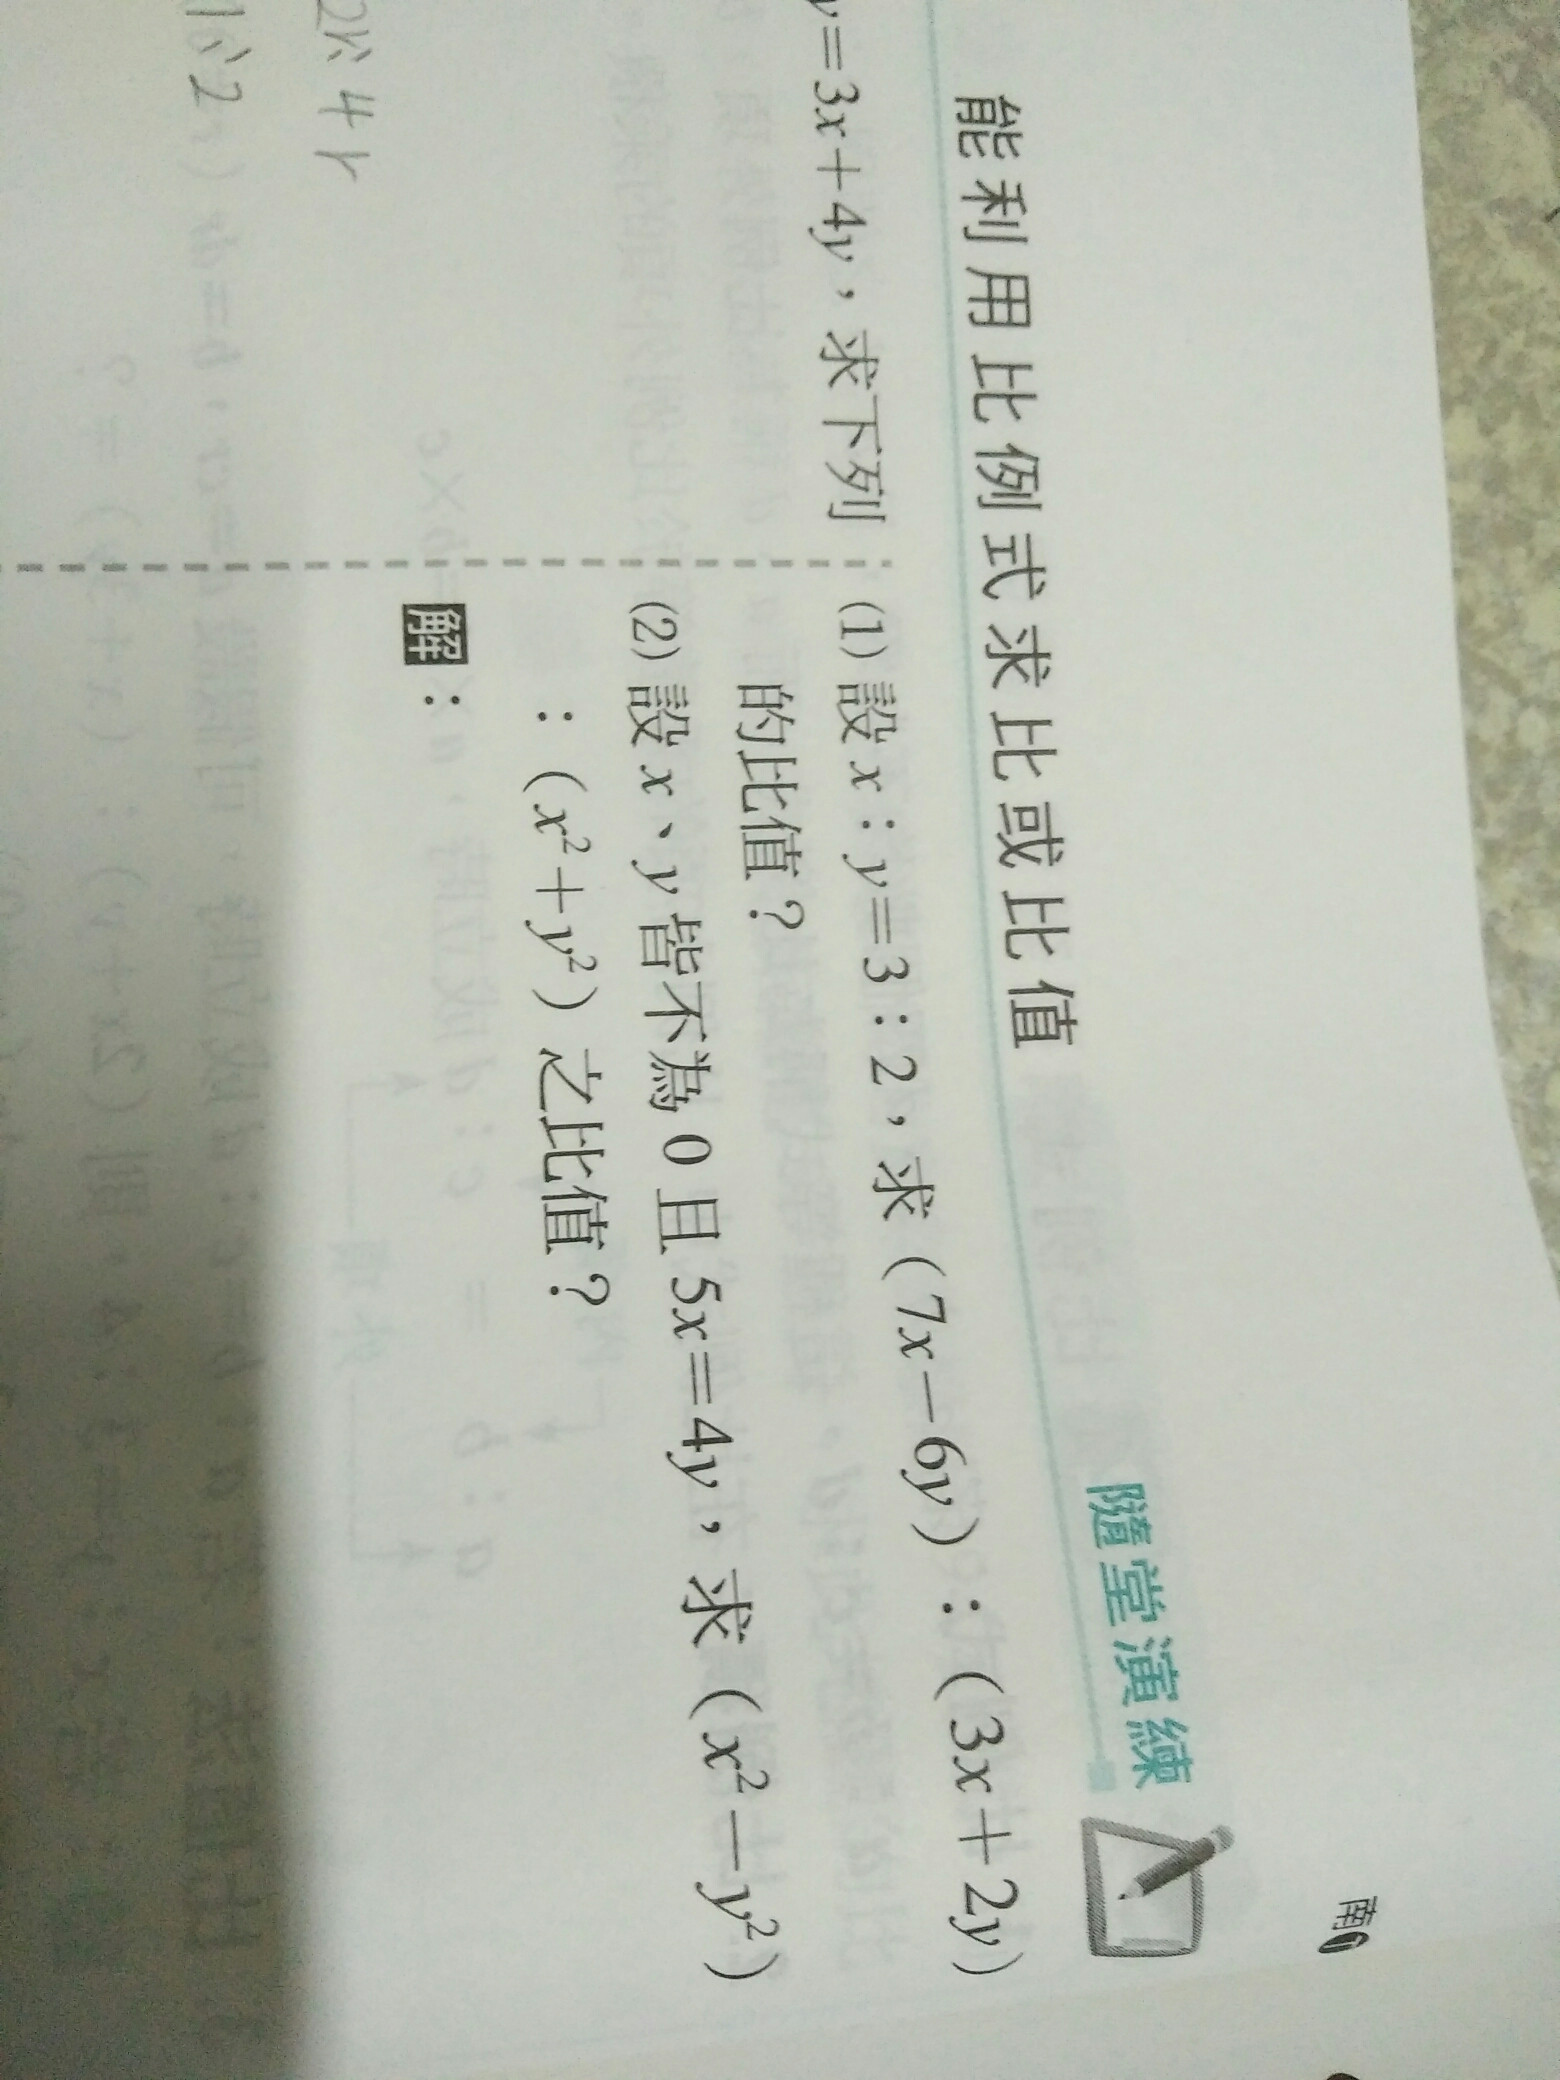 能利用比例式求比或比值
隨堂演練
y=3x+4y,求下列
(1) 設 x:y=3:2,求(7x-6y):(3x+2y)
的比值?
(2) 設 x、y 皆不為 0 且 5x=4y,求(x²-y²)
:(x²+y²)之比值?
解: